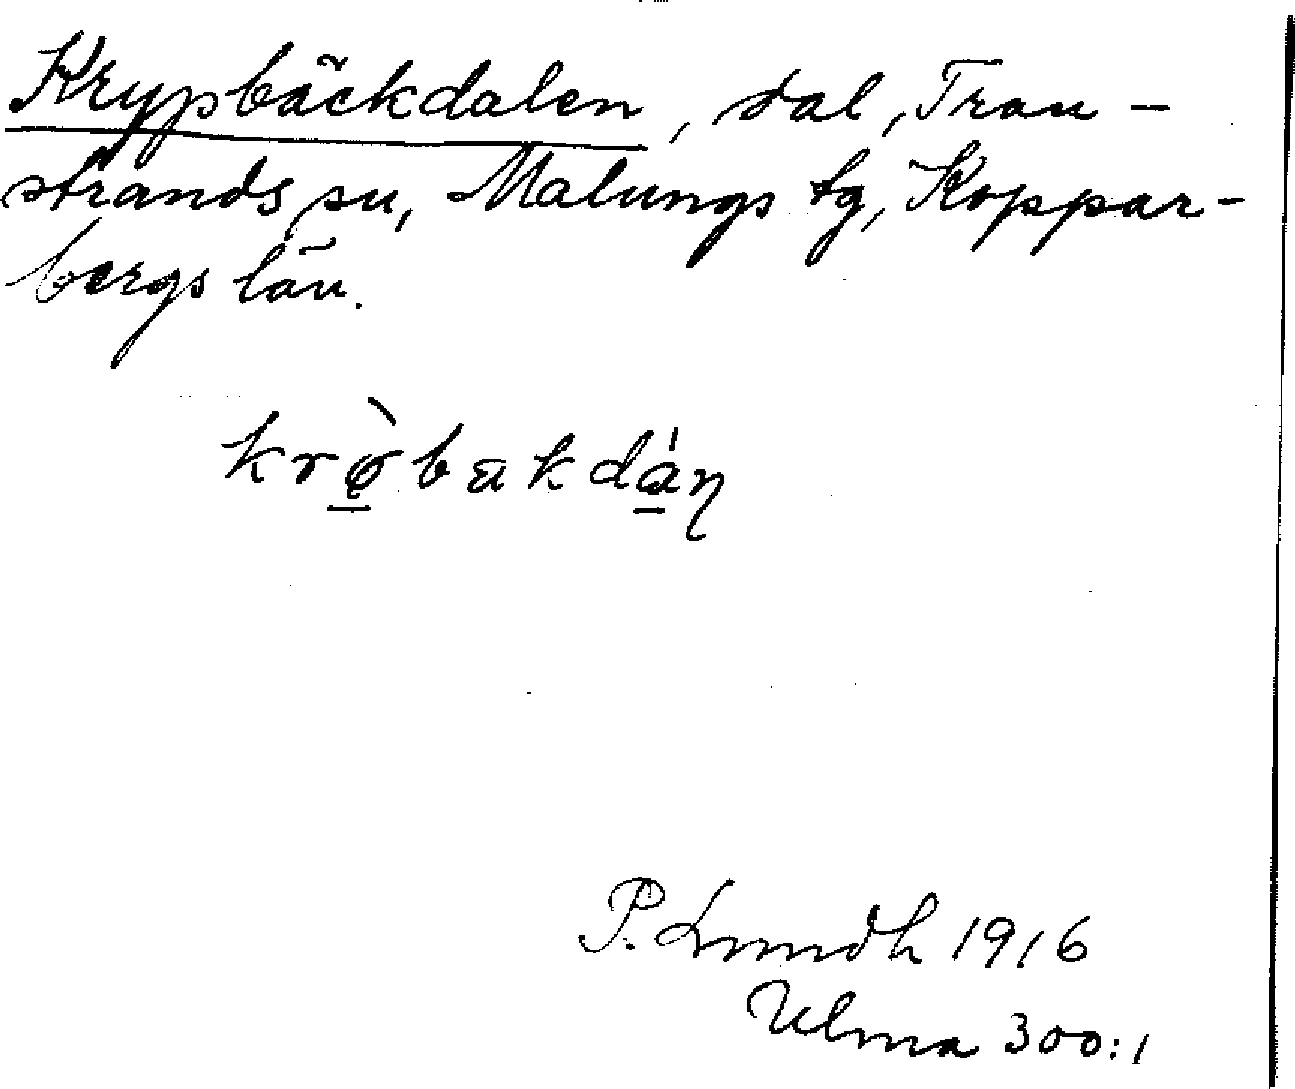 Krypbäckdalen, dal, Tran-
strands sn, Malungs tg, Koppar-
bergs län.
krø̠̀bakdá̠ŋ
P. Lundh 1916
Ulma 300:1